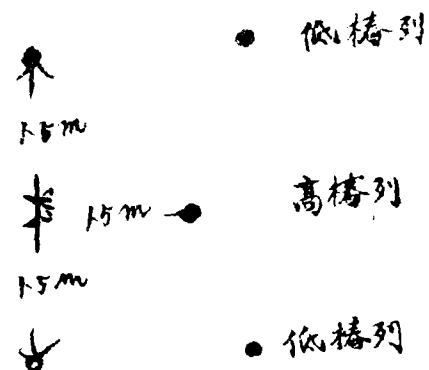 低樁列
1.5m
1.5m
高樁列
1.5m
低樁列